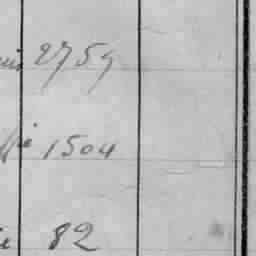 2759
1504
82